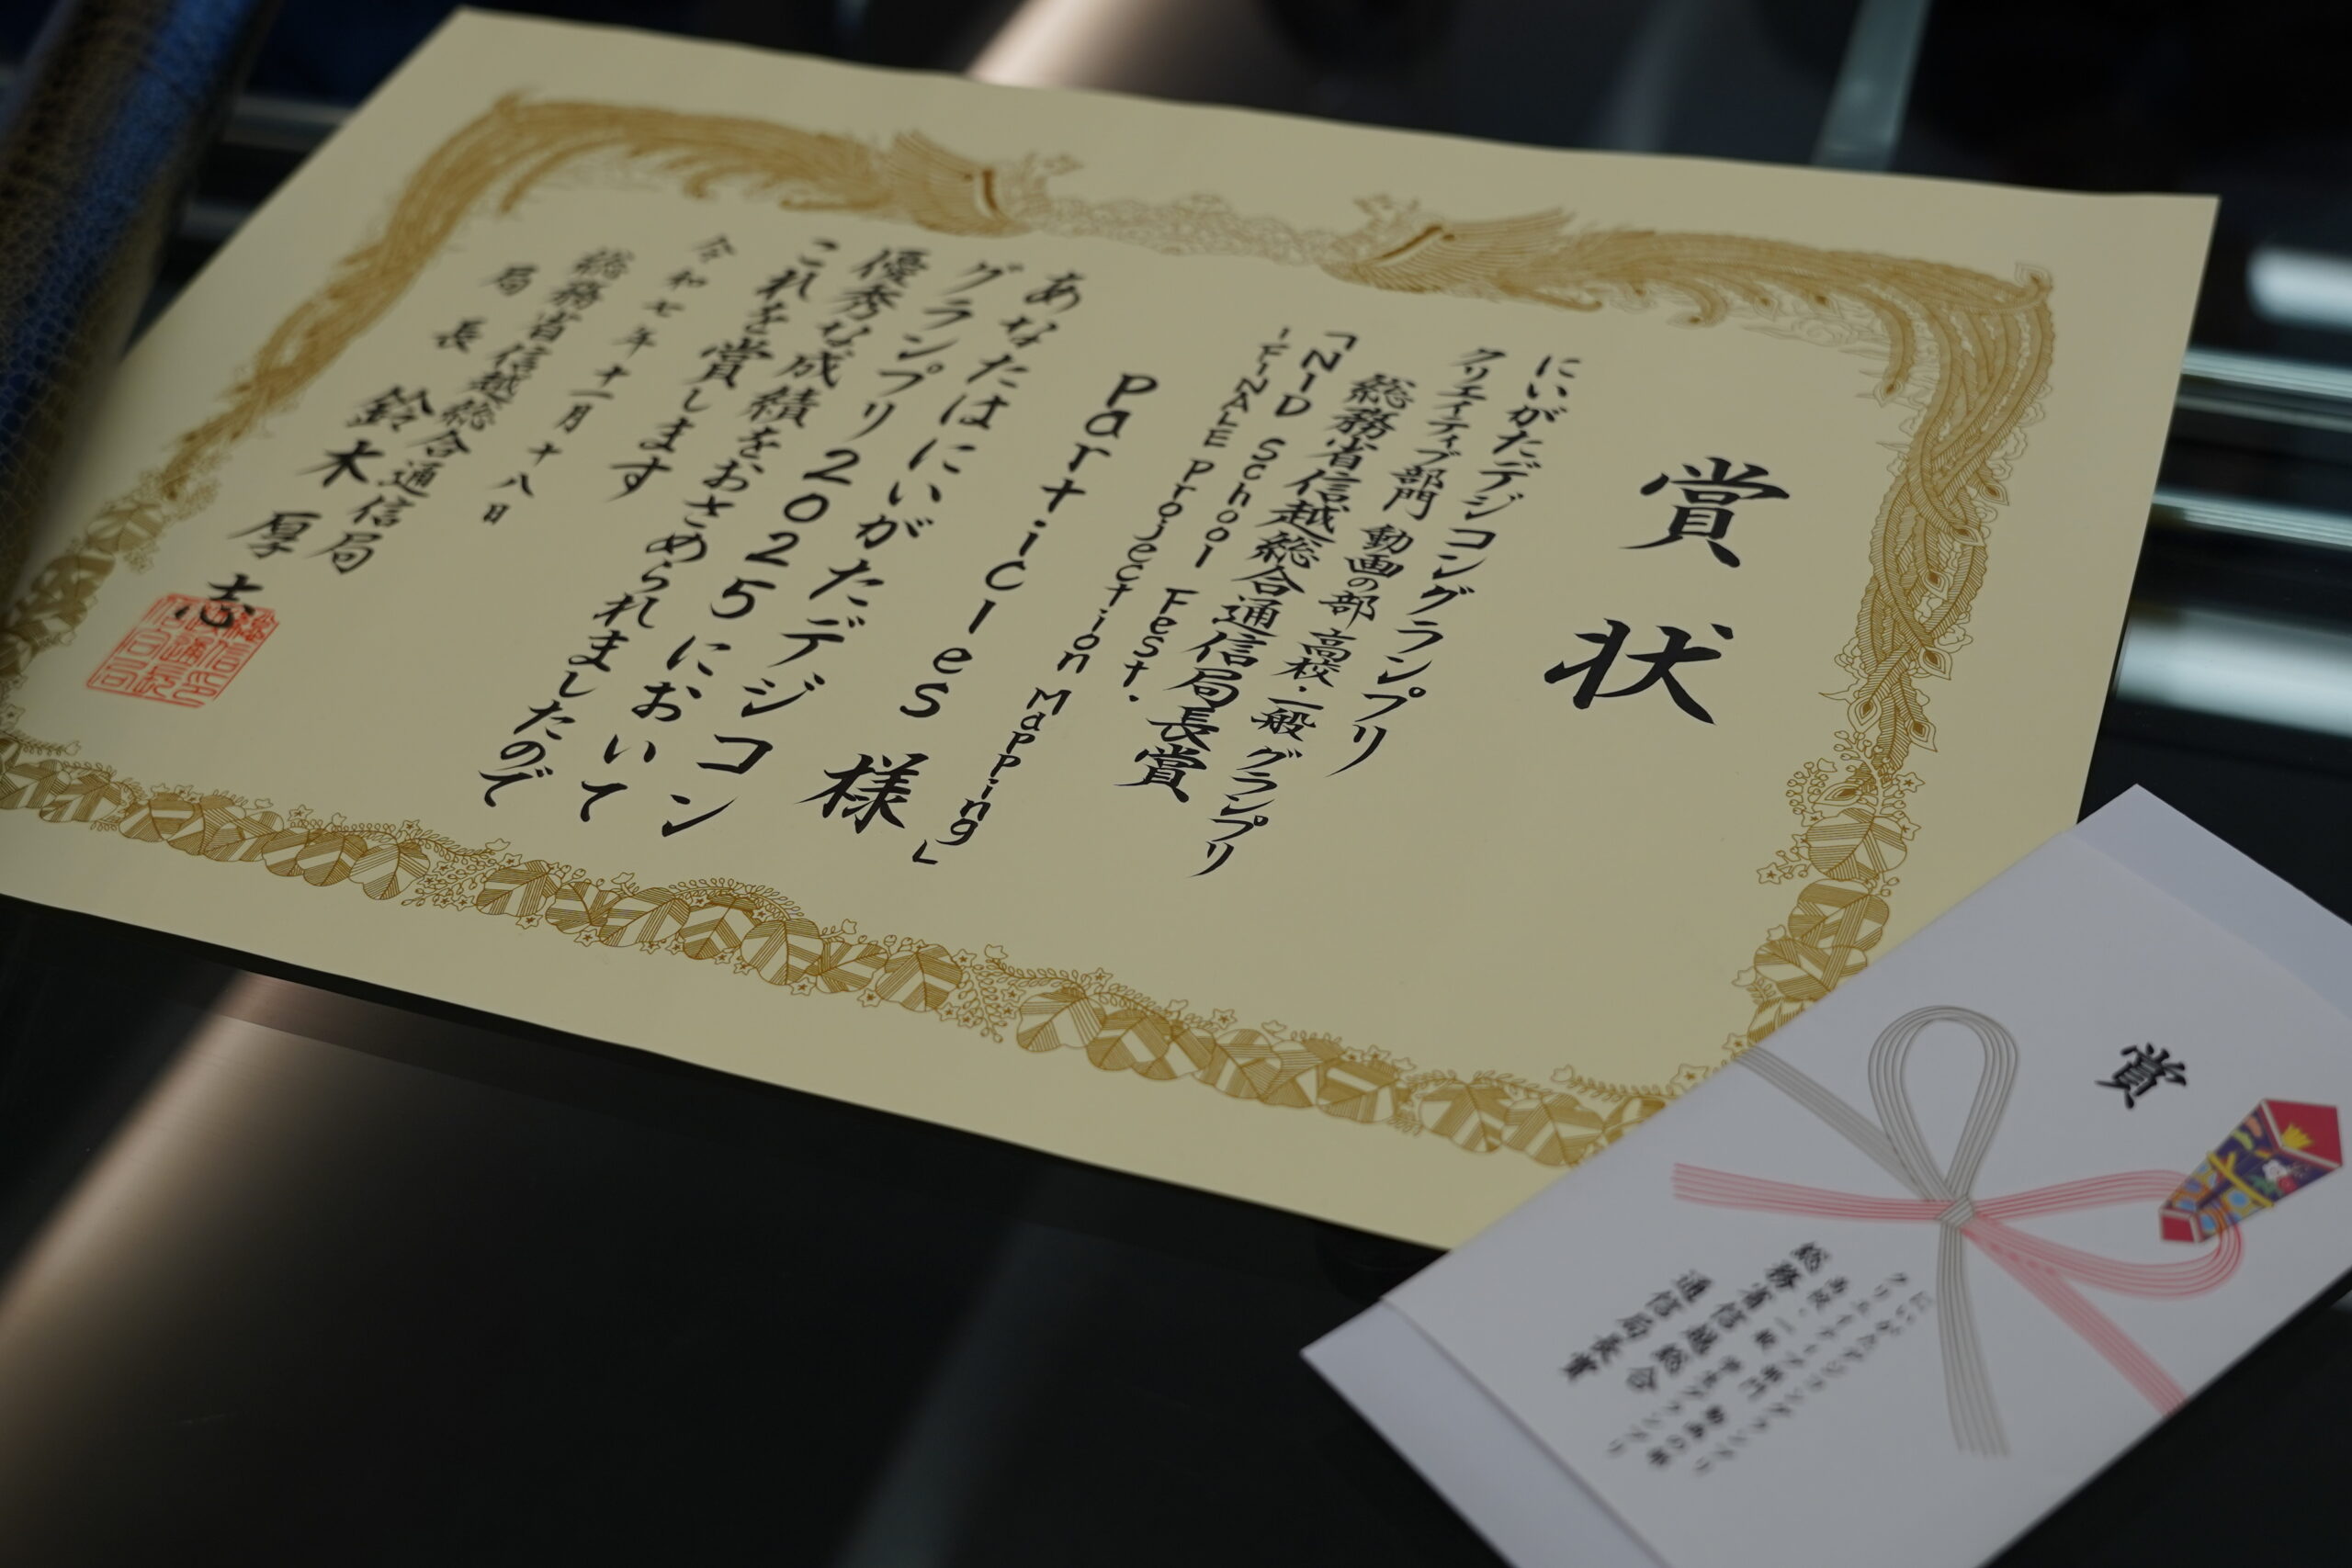 賞状
にいがたデジコングランプリ
クリエイティブ部門 動画の部 高校・一般 グランプリ
総務省信越総合通信局長賞
「NID School Fest.
-FINALE Projection Mapping」
Particles 様
あなたはにいがたデジコン
グランプリ2025において
優秀な成績をおさめられましたので
これを賞します
令和七年十一月十八日
総務省信越総合通信局
局長 鈴木厚志
賞
にいがたデジコングランプリ
総務省信越総合
通信局長賞